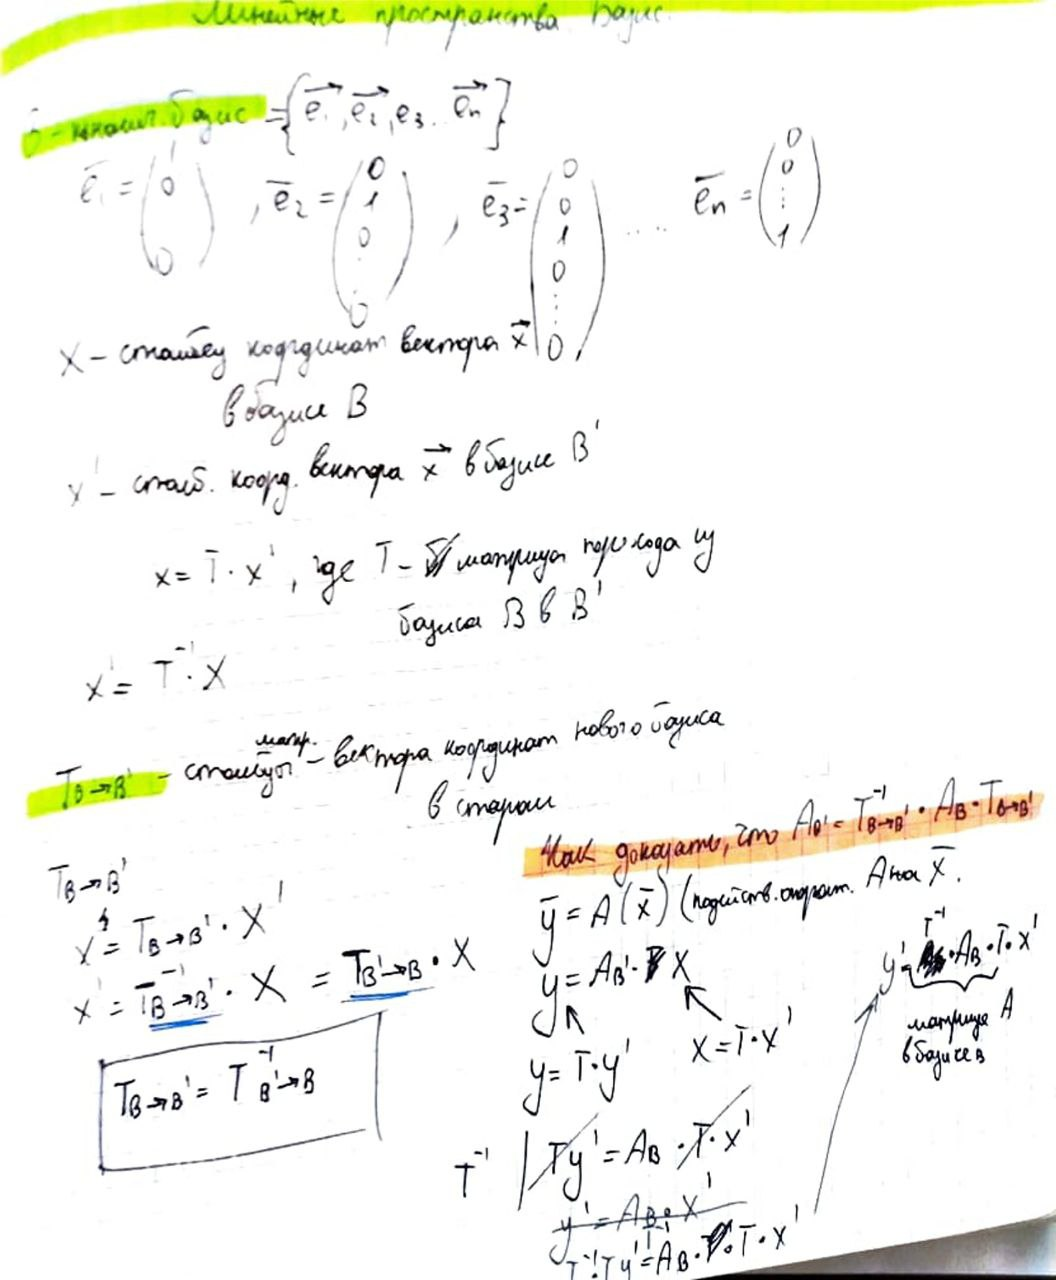 Линейные пространства. Базис.
базис = {e₁, e₂, e₃.. eₙ}
e₁ = (1 0 0), e₂ = (0 1 0 ⋮ 0), e₃ = (0 0 1 0 ⋮ 0) ..... eₙ = (0 0 ⋮ 1)
X – столбец координат вектора x
в базисе B
x' – столб. коорд. вектора x в базисе B'
x = T · x', где T – матрица перехода из
базиса B в B'
x' = T⁻¹ · X
T B→B' – столбцы матр. – вектора координат нового базиса
в старом
T B→B'
x = T B→B' · X'
x' = T⁻¹ B→B' · X = T B'→B · X
T B→B' = T⁻¹ B'→B
Как доказать, что A B' = T⁻¹ B→B' · A B · T B→B'
y = A(x) (подейств. операт. A на x.
y = A B' · X
x = T · x'
y = T · y'
T⁻¹ | T y' = A B · T · x'
y' = A B · X'
T⁻¹ · T y' = T⁻¹ A B · T · x'
y' = T⁻¹ · A B · T · x'
матрица A
в базисе B